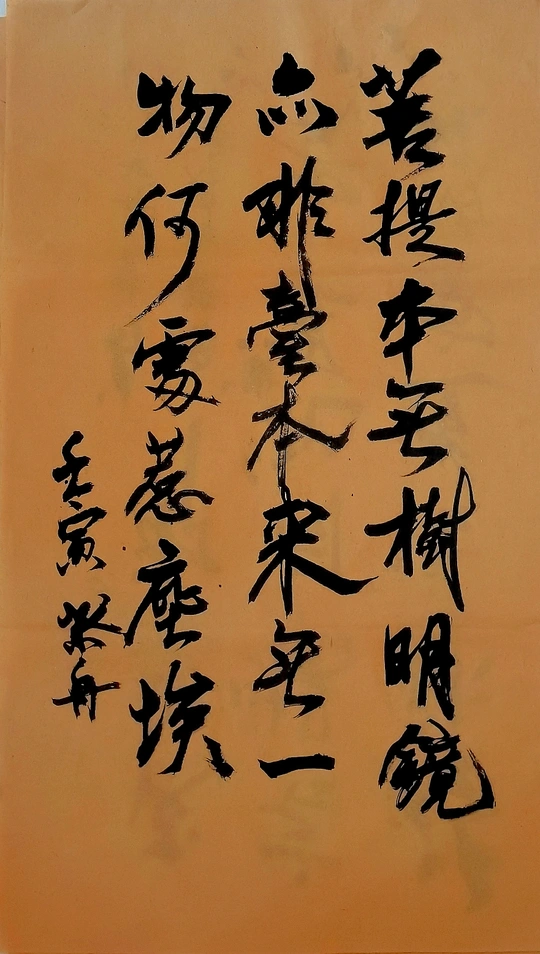 菩提本無樹明鏡
亦非臺本來無一
物何處惹塵埃
壬寅 舟